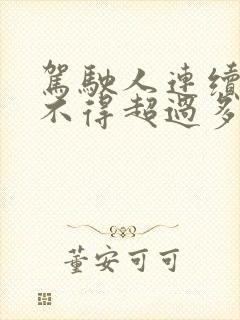 駕駛人連續
不得超過多
董安可可